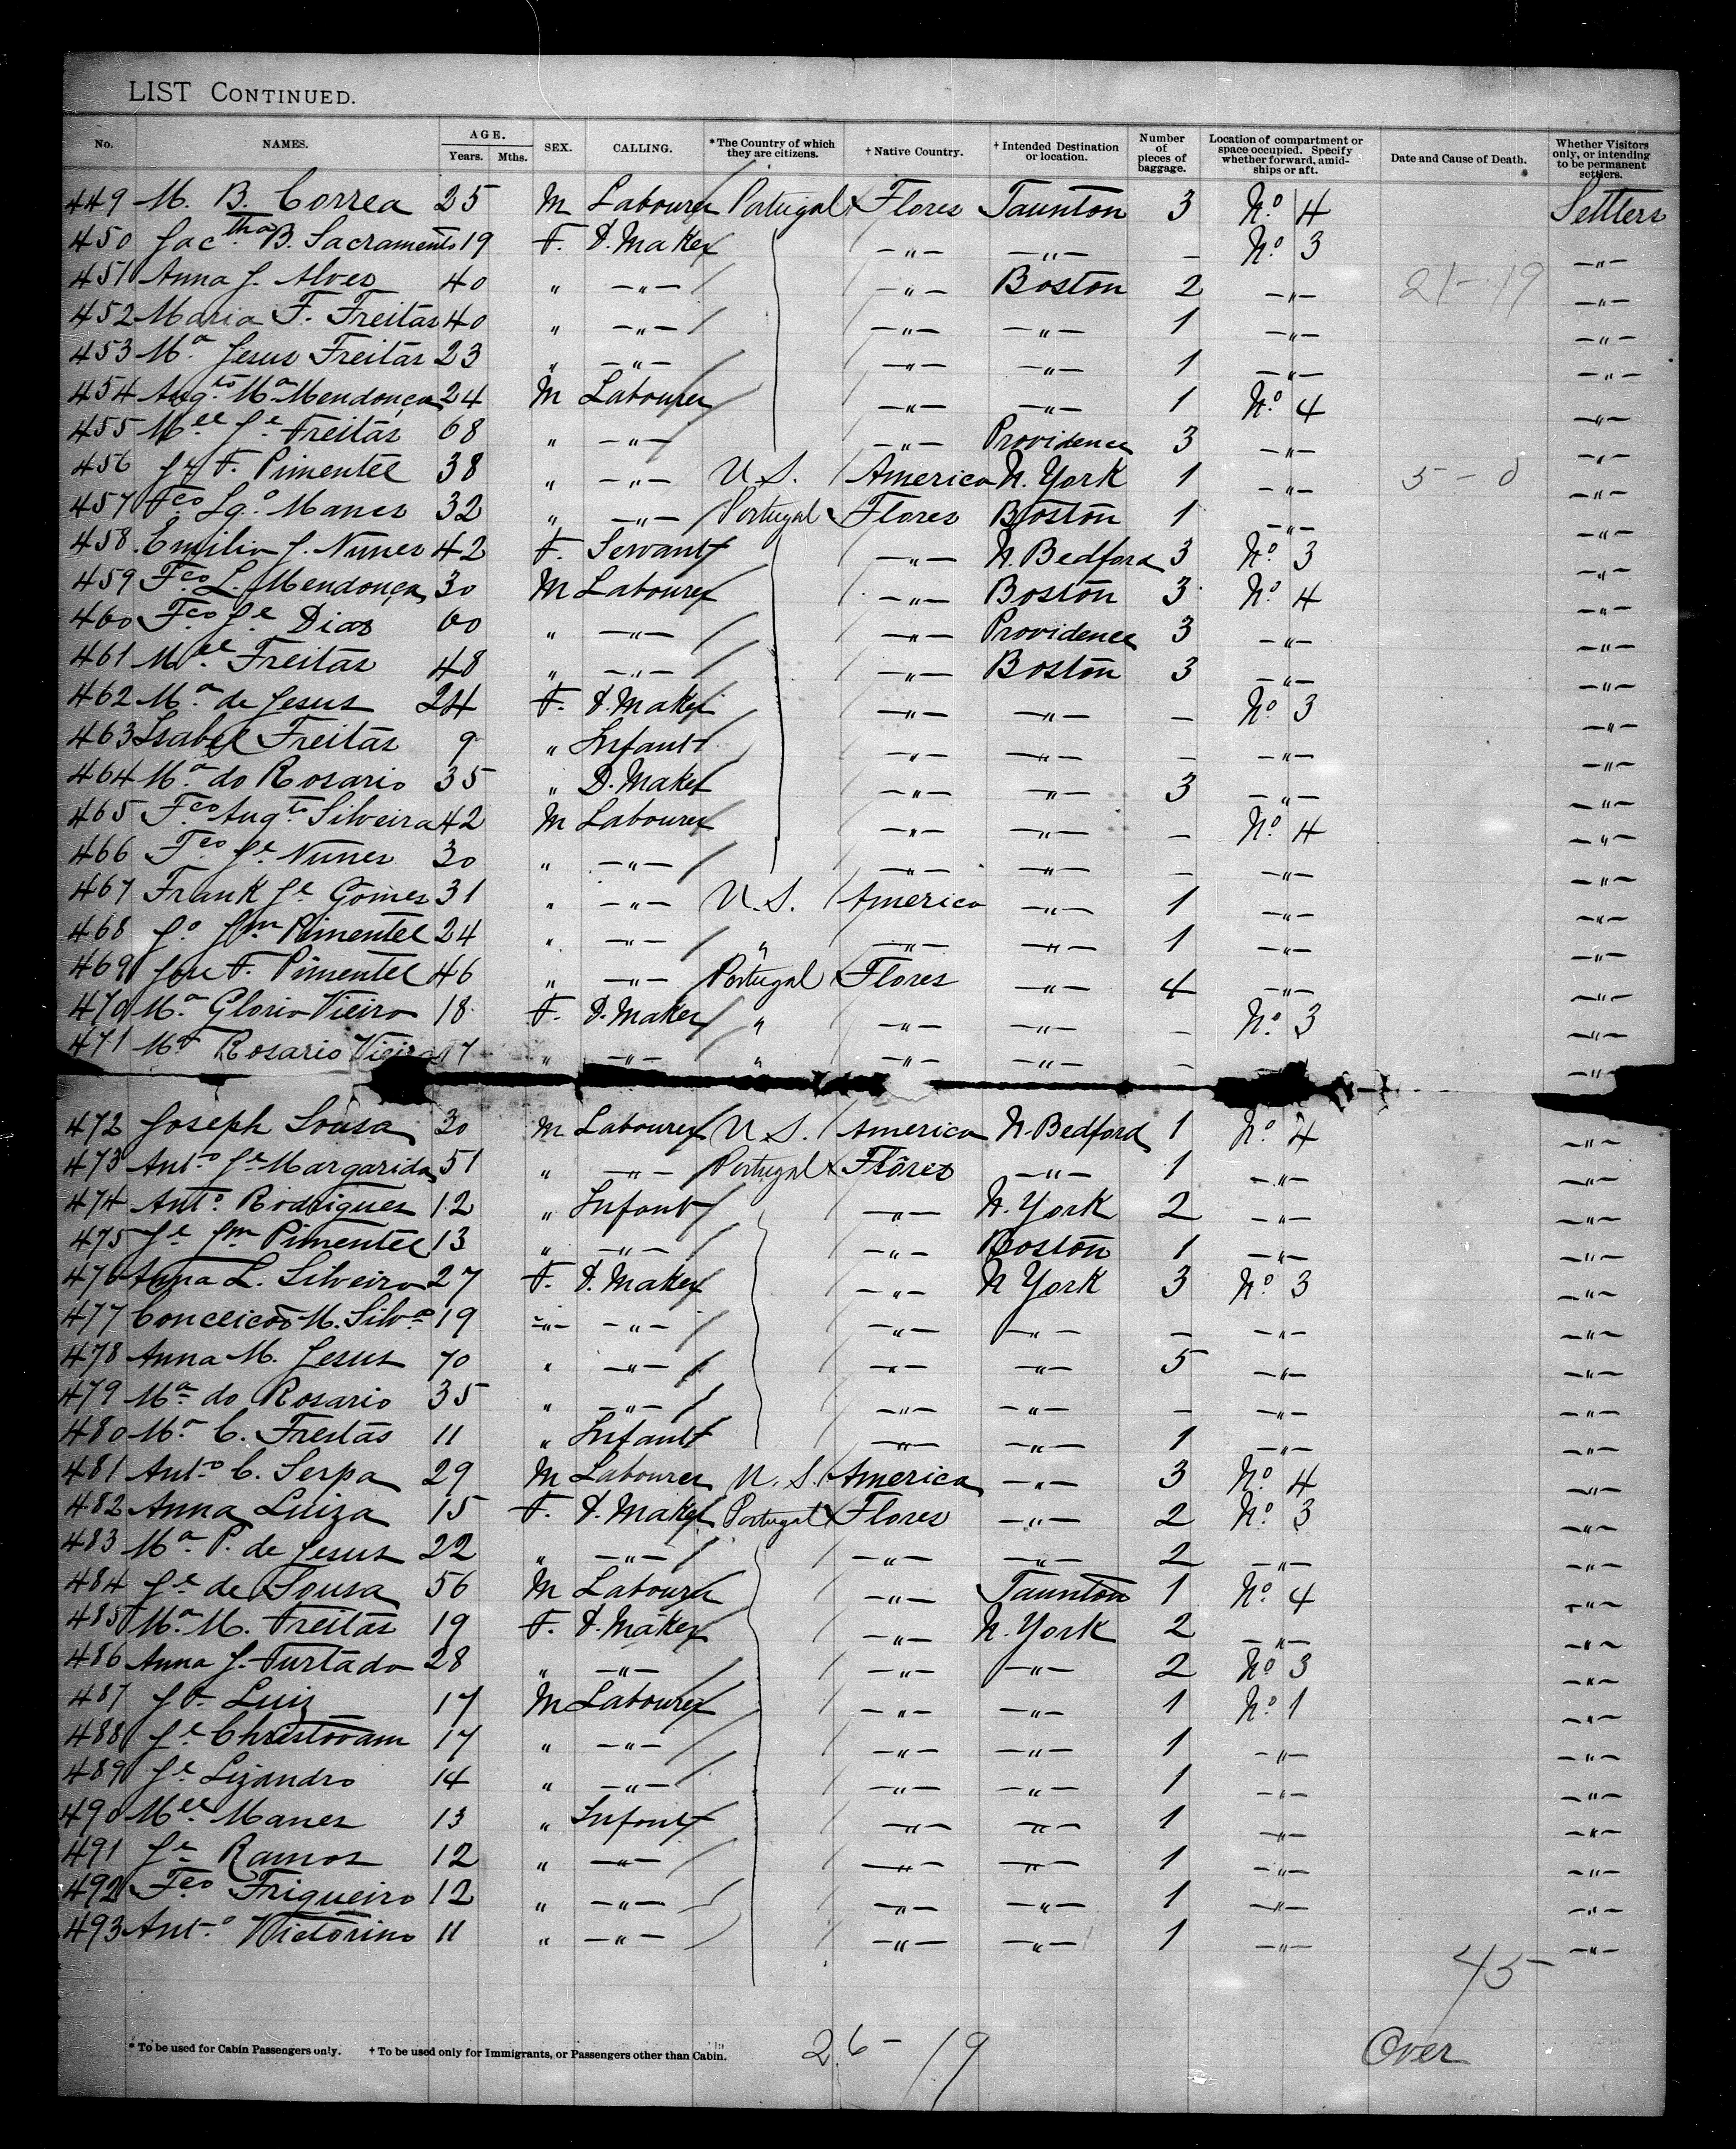 LIST CONTINUED.
No. NAMES. AGE. Years. Mths. SEX. CALLING. *The Country of which they are citizens. † Native Country. † Intended Destination or location. Number of pieces of baggage. Location of compartment or space occupied. Specify whether forward, amidships or aft. Date and Cause of Death. Whether Visitors only, or intending to be permanent settlers.
449 M. B. Correa 25 M Labourer Portugal Flores Taunton 3 No. 4 Settlers
450 Jac.tha B. Sacramento 19 F. D. Maker —"— —"— — No. 3 —"—
451 Anna J. Alves 40 " —"— —"— Boston 2 —"— 21-19 —"—
452 Maria F. Freitas 40 " —"— —"— —"— 1 —"— —"—
453 Ma. Jesus Freitas 23 " —"— —"— —"— 1 —"— —"—
454 Augto. Ma Mendonça 24 M Labourer —"— —"— 1 No. 4 —"—
455 Mel Je. Freitas 68 " —"— —"— Providence 3 —"— —"—
456 F. Pimentel 38 " —"— U.S. America N. York 1 —"— 5 - 0 —"—
457 Fco Manes 32 " —"— Portugal Flores Boston 1 —"— —"—
458. Emilia J. Nunes 42 F. Servant —"— N. Bedford 3 No. 3 —"—
459 Fco L. Mendonça 30 M Labourer —"— Boston 3 No. 4 —"—
460 Fco Je Dias 60 " —"— —"— Providence 3 —"— —"—
461 Mel Freitas 48 " —"— —"— Boston 3 —"— —"—
462 Ma. de Jesus 24 F. D. Maker —"— —"— — No. 3 —"—
463 Isabel Freitas 9 " Infant —"— —"— — —"— —"—
464 Ma. do Rosario 35 " D. Maker —"— —"— 3 —"— —"—
465 Fco Augto Silveira 42 M Labourer —"— —"— — No. 4 —"—
466 Fco Je. Nunes 30 " —"— —"— —"— — —"— —"—
467 Frank Je Gomes 31 " —"— U.S. America —"— 1 —"— —"—
468 Jo Jm Pimentel 24 " —"— " —"— —"— 1 —"— —"—
469 Jose F. Pimentel 46 " —"— Portugal Flores —"— 4 —"— —"—
470 Ma. Gloria Vieira 18 F. D. Maker " —"— —"— — No. 3 —"—
471 Ma Rosario Vieira 17 " —"— " —"— —"— — —"—
472 Joseph Sousa 30 M Labourer U.S. America N. Bedford 1 No. 4 —"—
473 Anto. Je Margarida 51 " —"— Portugal Flores —"— 1 —"— —"—
474 Anto. Rodrigues 12 " Infant —"— N. York 2 —"— —"—
475 Je Jm Pimentel 13 " —"— —"— Boston 1 —"— —"—
476 Anna L. Silveira 27 F. D. Maker —"— N York 3 No. 3 —"—
477 Conceicao M. Silva 19 —"— —"— —"— —"— — —"— —"—
478 Anna M. Jesus 70 " —"— —"— —"— 5 —"— —"—
479 Ma do Rosario 35 " —"— —"— —"— — —"— —"—
480 Ma. C. Freitas 11 " Infant —"— —"— 1 —"— —"—
481 Anto. C. Serpa 29 M Labourer U.S. America —"— 3 No. 4 —"—
482 Anna Luiza 15 F. D. Maker Portugal Flores —"— 2 No. 3 —"—
483 Ma P. de Jesus 22 " —"— —"— —"— 2 —"— —"—
484 Je de Sousa 56 M Labourer —"— Taunton 1 No. 4 —"—
485 Ma. M. Freitas 19 F. D. Maker —"— N. York 2 —"— —"—
486 Anna J. Furtado 28 " —"— —"— —"— 2 No. 3 —"—
487 Luiz 17 M Labourer —"— —"— 1 No. 1 —"—
488 Je Christovam 17 " —"— —"— —"— 1 —"— —"—
489 Je Lizandro 14 " —"— —"— —"— 1 —"— —"—
490 Mel Manes 13 " Infant —"— —"— 1 —"— —"—
491 Je Ramos 12 " —"— —"— —"— 1 —"— —"—
492 Fco Frigueiro 12 " —"— —"— —"— 1 —"— —"—
493 Anto. Victorino 11 " —"— —"— —"— 1 —"— —"—
45
* To be used for Cabin Passengers only. † To be used only for Immigrants, or Passengers other than Cabin.
26 - 19
Over